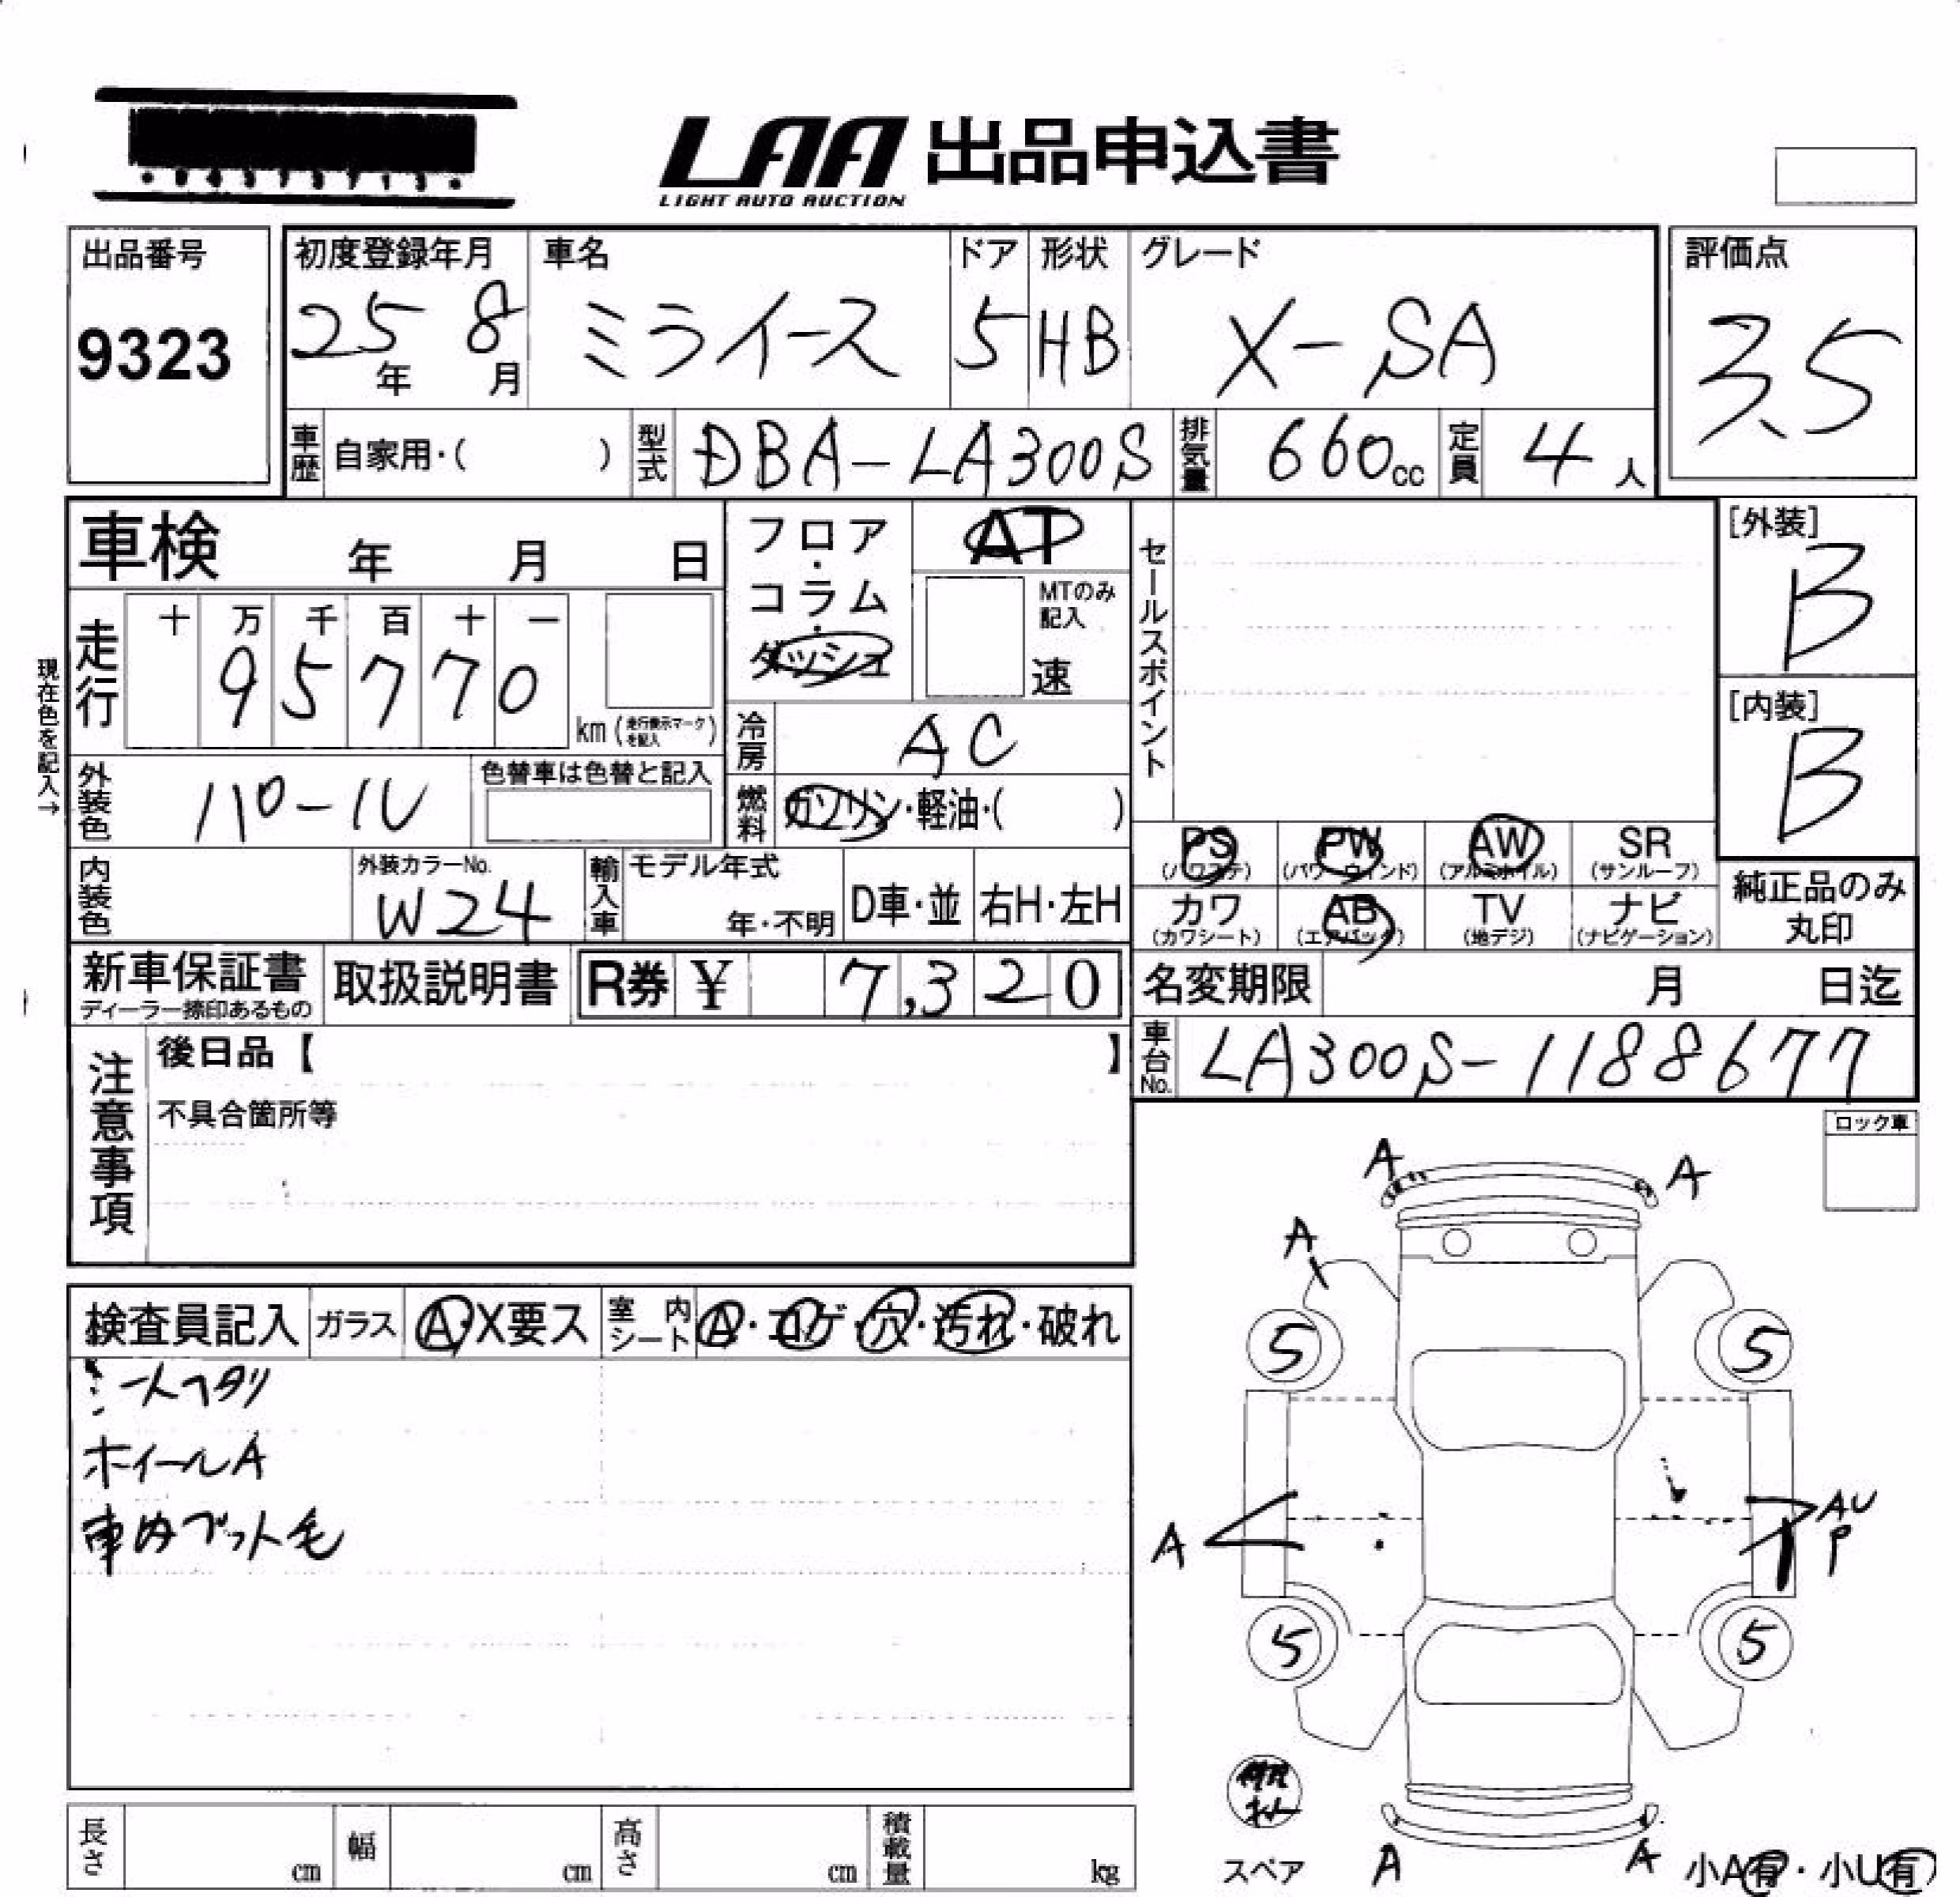 LAA 出品申込書
LIGHT AUTO AUCTION
出品番号
9323
初度登録年月
25年 8月
車名
ミライース
ドア
5
形状
HB
グレード
X-SA
評価点
3.5
車歴 自家用・( )
型式 DBA-LA300S
排気量 660cc
定員 4人
車検 年 月 日
フロア・コラム・ダッシュ
AT
MTのみ記入
速
セールスポイント
[外装]
B
[内装]
B
現在色を記入→
走行 十 万 千 百 十 一
95770
km (走行表示マークを記入)
冷房 AC
外装色 パール
色替車は色替と記入
燃料 ガソリン・軽油・( )
PS (パワステ)
PW (パワーウィンド)
AW (アルミホイル)
SR (サンルーフ)
カワ (カワシート)
AB (エアバック)
TV (地デジ)
ナビ (ナビゲーション)
純正品のみ丸印
内装色
外装カラーNo.
W24
輸入車
モデル年式
年・不明
D車・並
右H・左H
新車保証書
ディーラー捺印あるもの
取扱説明書
R券 ¥ 7,320
名変期限 月 日迄
車台No. LA300S-1188677
注意事項
後日品【 】
不具合箇所等
ロック車
検査員記入
ガラス A・X要ス
室内シート A・コゲ・穴・汚れ・破れ
シートヘタリ
ホイールA
車内ペット毛
A
A
A
5
5
A
AU
P
5
5
スペア
A
A
小A有・小U有
長さ cm
幅 cm
高さ cm
積載量 kg